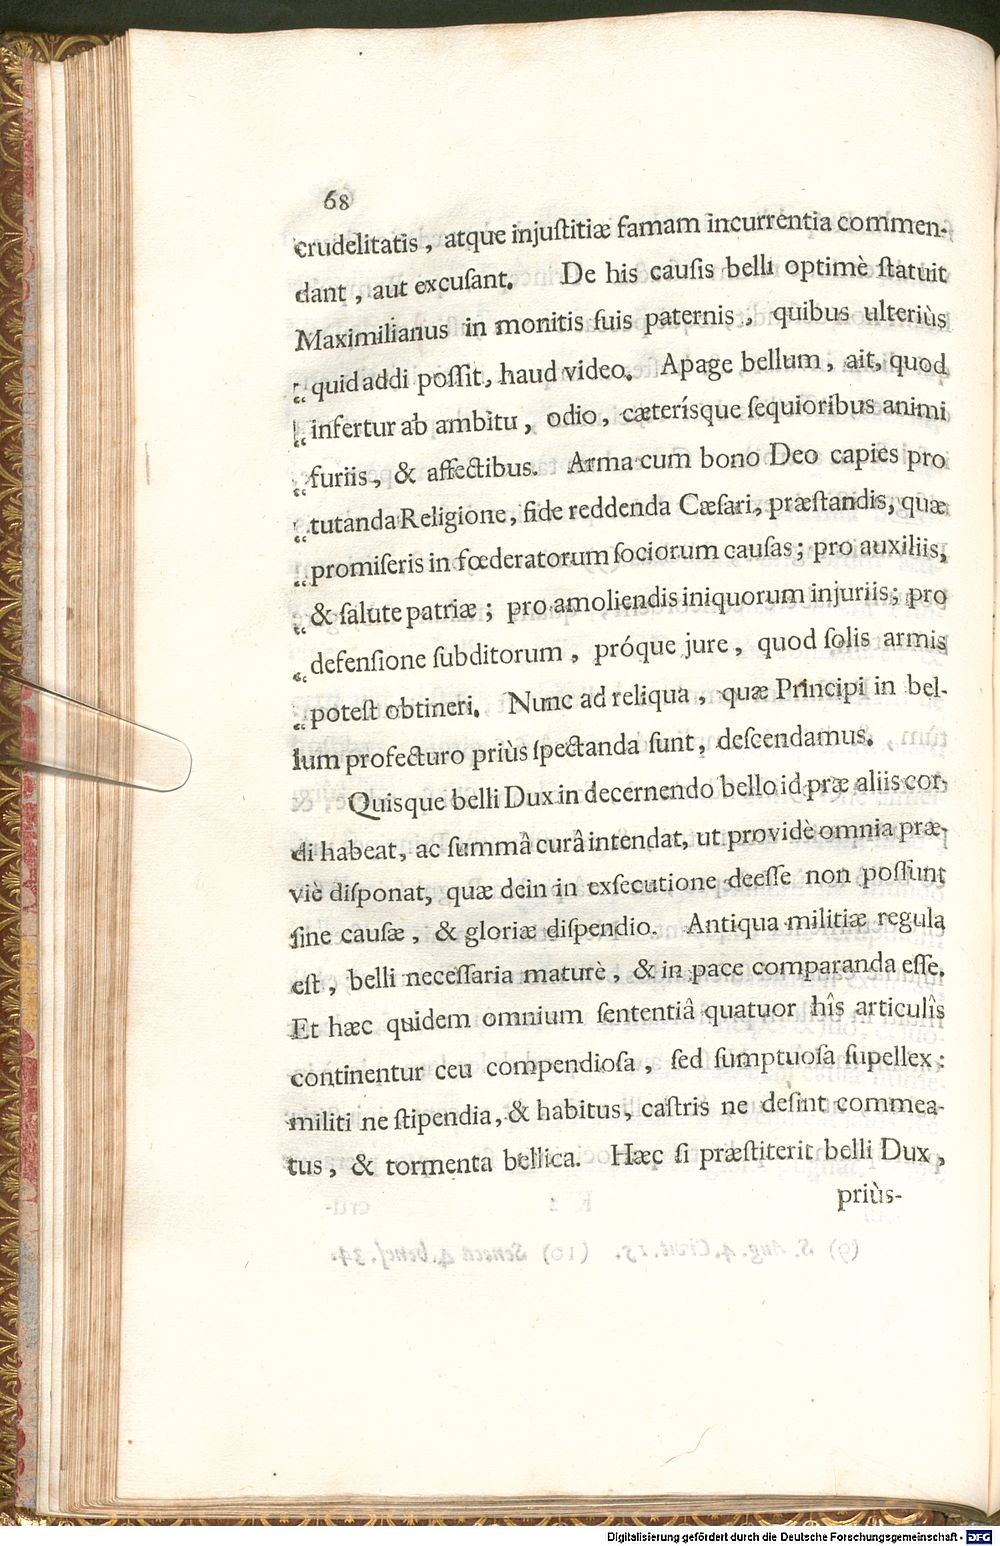 68
crudelitatis, atque injuſtitiæ famam incurrentia commen-
dant, aut excuſant. De his cauſis belli optimè ſtatuit
Maximilianus in monitis ſuis paternis, quibus ulteriùs
„ quid addi poſſit, haud video. Apage bellum, ait, quod
„ infertur ab ambitu, odio, cæterísque ſequioribus animi
„ furiis, & affectibus. Arma cum bono Deo capies pro
„ tutanda Religione, fide reddenda Cæſari, præſtandis, quæ
„ promiſeris in fœderatorum ſociorum cauſas; pro auxiliis,
„ & ſalute patriæ; pro amoliendis iniquorum injuriis; pro
„ defenſione ſubditorum, próque jure, quod ſolis armis
„ poteſt obtineri. Nunc ad reliqua, quæ Principi in bel-
lum profecturo priùs ſpectanda ſunt, deſcendamus.
Quisque belli Dux in decernendo bello id præ aliis cor-
di habeat, ac ſummâ curâ intendat, ut providè omnia præ-
viè diſponat, quæ dein in exſecutione deeſſe non poſſunt
ſine cauſæ, & gloriæ diſpendio. Antiqua militiæ regula
eſt, belli neceſſaria maturè, & in pace comparanda eſſe.
Et hæc quidem omnium ſententiâ quatuor hîs articulîs
continentur ceu compendioſa, ſed ſumptuoſa ſupellex:
militi ne ſtipendia, & habitus, caſtris ne deſint commea-
tus, & tormenta bellica. Hæc ſi præſtiterit belli Dux,
priùs-
Digitalisierung gefördert durch die Deutsche Forschungsgemeinschaft - DFG